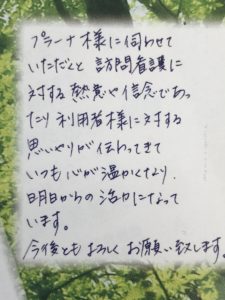 プラーナ様に伺わせて
いただくと 訪問看護に
対する熱意や信念であっ
たり利用者様に対する
思いやりが伝わってきて
いつも心が温かくなり、
明日からの活力になって
います。
今後ともよろしくお願い致します。